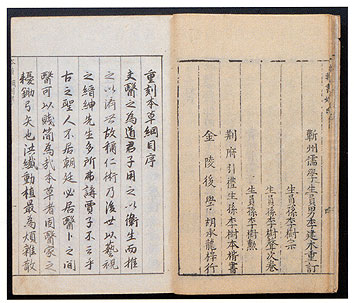 蘄州儒學生員男李建木重訂
生員孫李樹宗
生員孫李樹聲次卷
生員孫李樹勲
荊府引禮生孫李樹本楷書
金陵後學胡承龍梓行
重刻本草綱目序
夫醫之為道君子用之以衛生而推
之以濟世故稱仁術乃後世以藝視
之縉紳先生多所弗講賈子不云乎
古之聖人不居朝廷必居醫卜之間
醫可以賤簡為哉本草者固醫家之
耰鋤弓矢也洪纖動植最為煩雜散